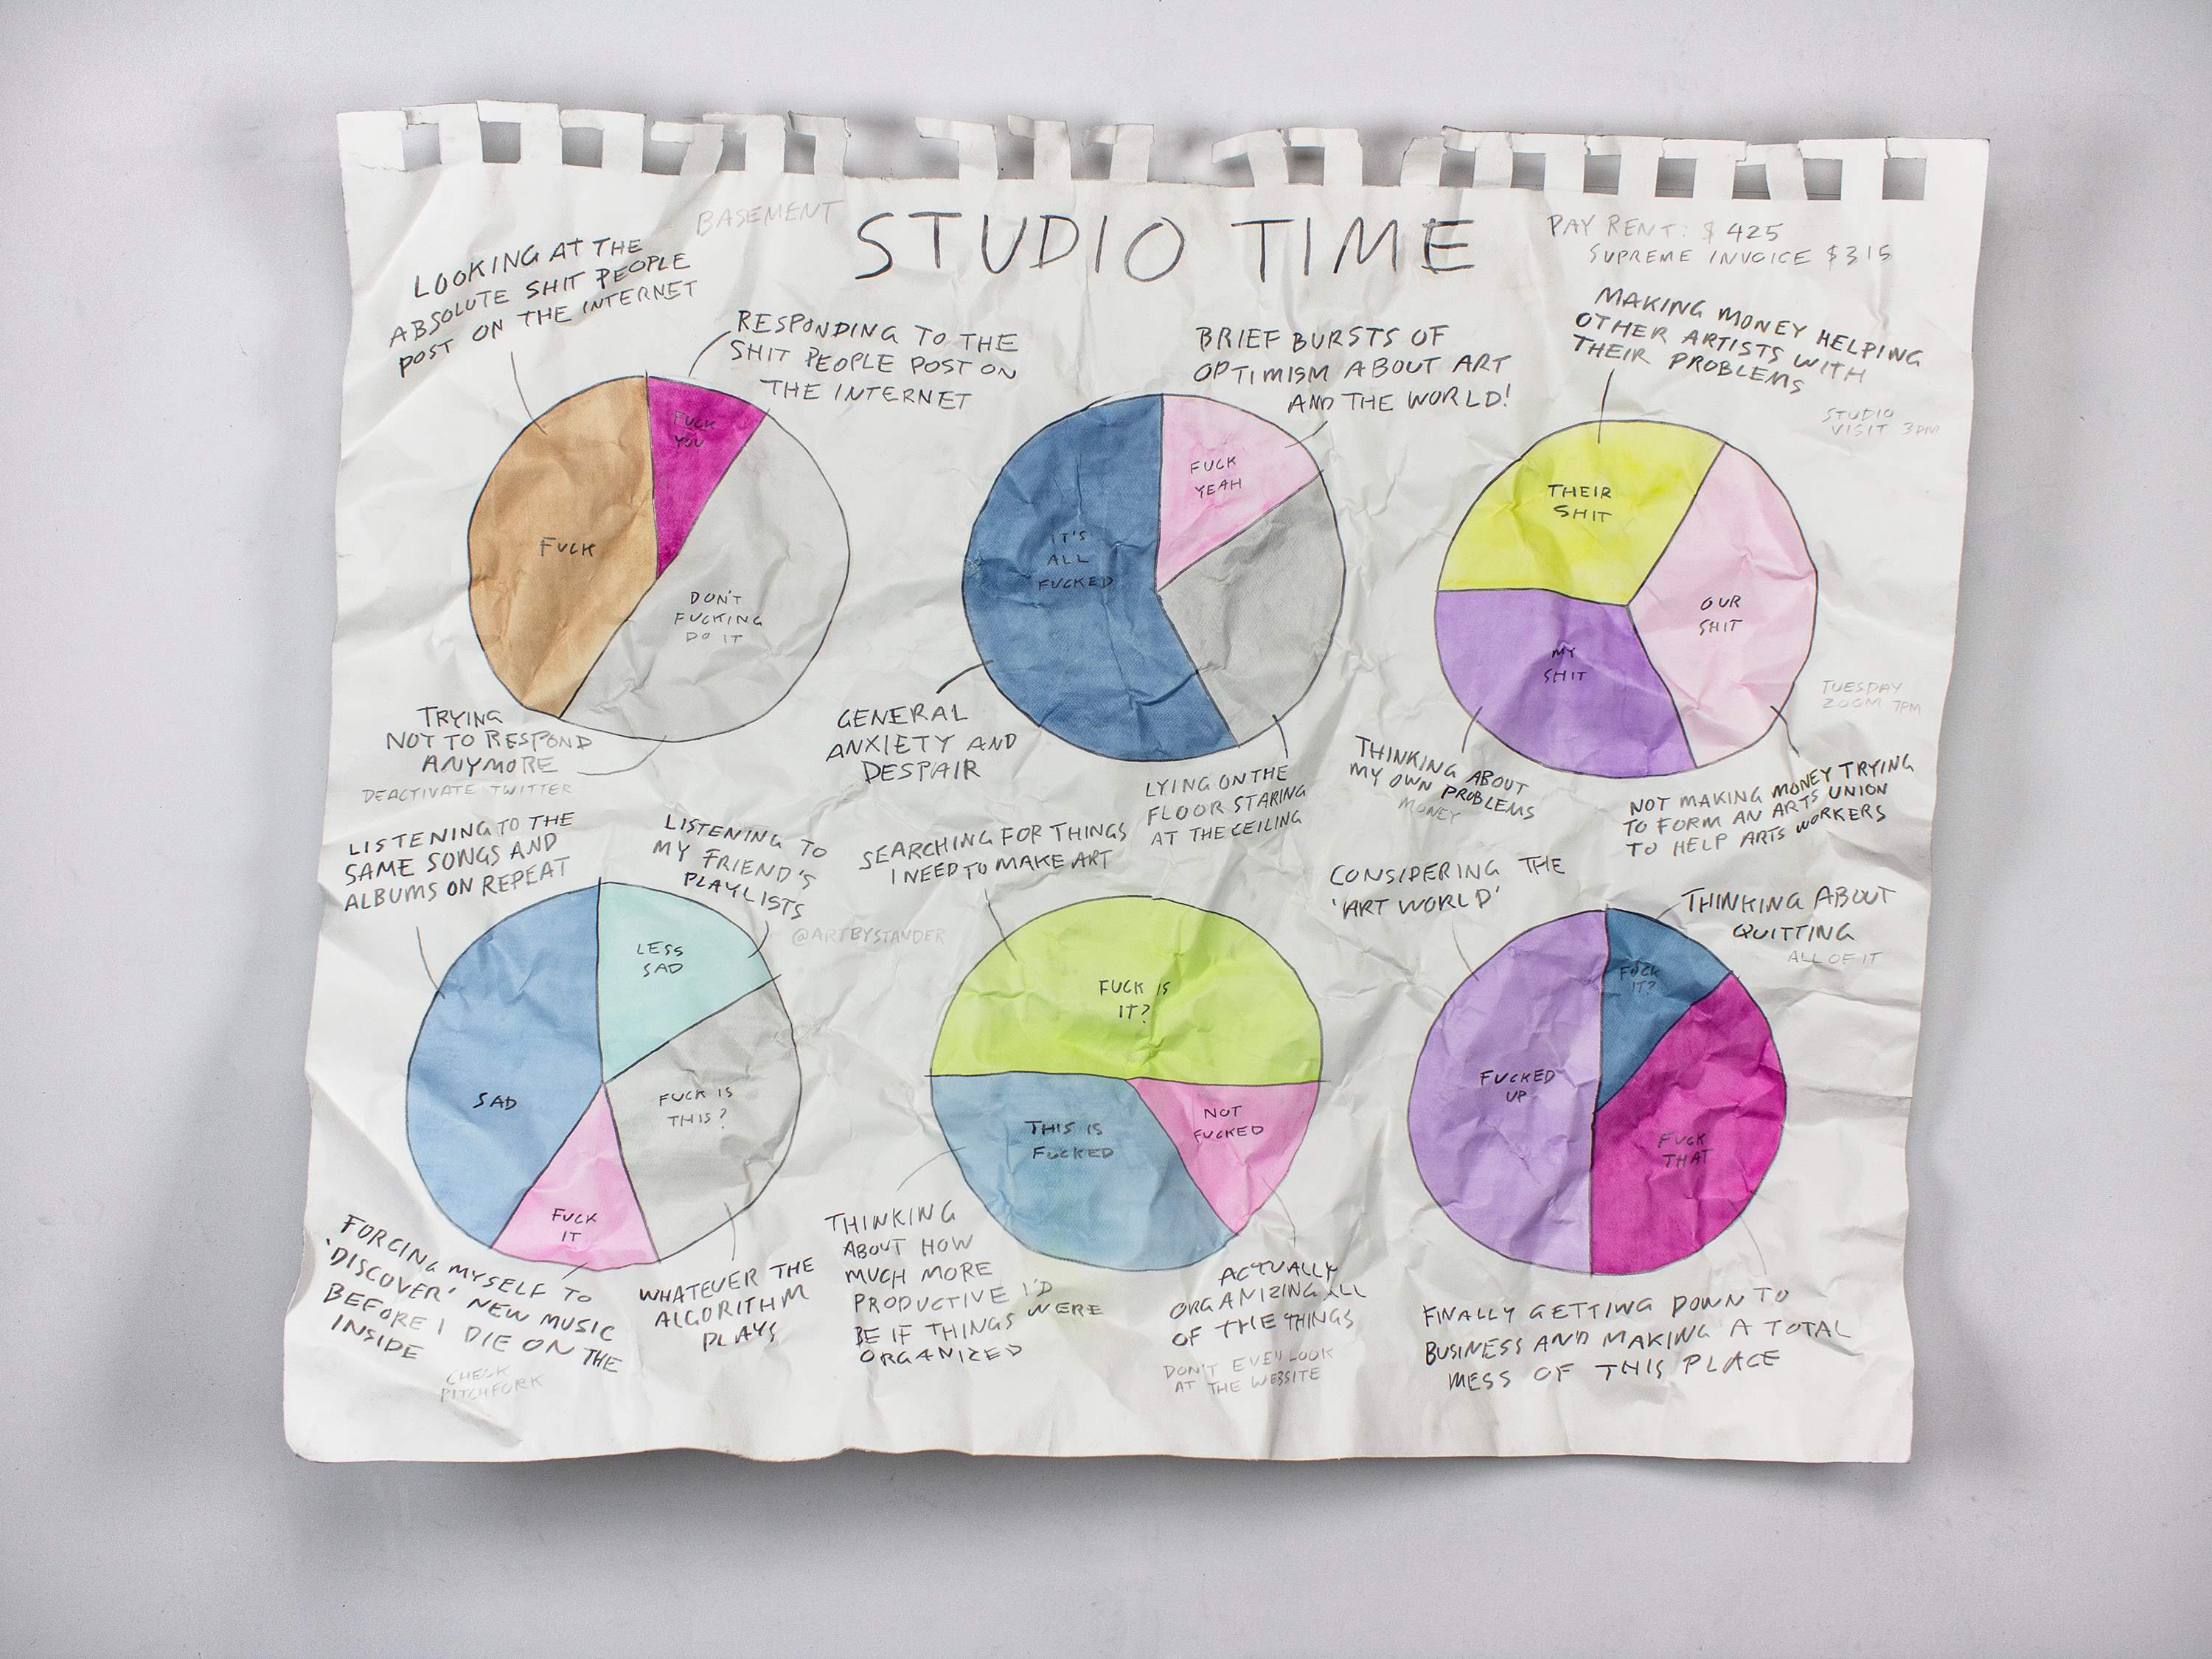 BASEMENT
STUDIO TIME
PAY RENT: $ 425
SUPREME INVOICE $315
LOOKING AT THE
ABSOLUTE SHIT PEOPLE
POST ON THE INTERNET
RESPONDING TO THE
SHIT PEOPLE POST ON
THE INTERNET
FUCK
YOU
FUCK
DON'T
FUCKING
DO IT
TRYING
NOT TO RESPOND
ANYMORE
DEACTIVATE TWITTER
BRIEF BURSTS OF
OPTIMISM ABOUT ART
AND THE WORLD!
FUCK
YEAH
IT'S
ALL
FUCKED
GENERAL
ANXIETY AND
DESPAIR
LYING ON THE
FLOOR STARING
AT THE CEILING
MAKING MONEY HELPING
OTHER ARTISTS WITH
THEIR PROBLEMS
STUDIO
VISIT 3PM
THEIR
SHIT
OUR
SHIT
MY
SHIT
TUESDAY
ZOOM 7PM
THINKING ABOUT
MY OWN PROBLEMS
MONEY
NOT MAKING MONEY TRYING
TO FORM AN ARTS UNION
TO HELP ARTS WORKERS
LISTENING TO THE
SAME SONGS AND
ALBUMS ON REPEAT
LISTENING TO
MY FRIEND'S
PLAYLISTS
@ARTBYSTANDER
LESS
SAD
SAD
FUCK IS
THIS?
FUCK
IT
FORCING MYSELF TO
'DISCOVER' NEW MUSIC
BEFORE I DIE ON THE
INSIDE
CHECK
PITCHFORK
WHATEVER THE
ALGORITHM
PLAYS
SEARCHING FOR THINGS
I NEED TO MAKE ART
FUCK IS
IT?
THIS IS
FUCKED
NOT
FUCKED
THINKING
ABOUT HOW
MUCH MORE
PRODUCTIVE I'D
BE IF THINGS WERE
ORGANIZED
ACTUALLY
ORGANIZING ALL
OF THE THINGS
DON'T EVEN LOOK
AT THE WEBSITE
CONSIDERING THE
'ART WORLD'
THINKING ABOUT
QUITTING
ALL OF IT
FUCK
IT?
FUCKED
UP
FUCK
THAT
FINALLY GETTING DOWN TO
BUSINESS AND MAKING A TOTAL
MESS OF THIS PLACE